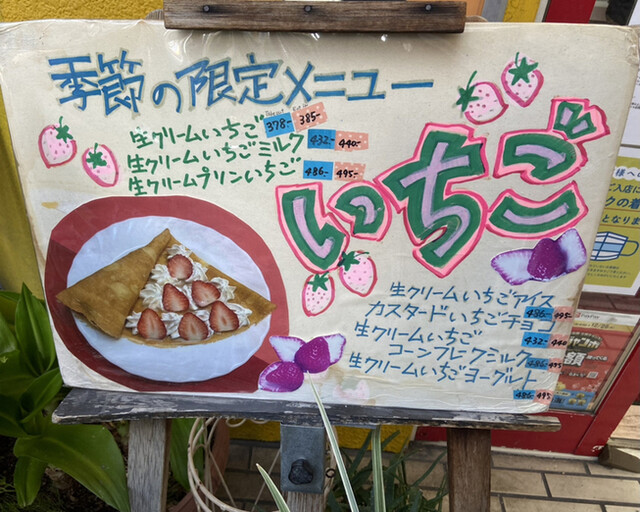 季節の限定メニュー
生クリームいちご 378- 385-
生クリームいちごミルク 432- 440-
生クリームプリンいちご 486- 495-
いちご
生クリームいちごアイス 486- 495-
カスタードいちごチョコ 432- 440
生クリームいちご
コーンフレークミルク 486- 495-
生クリームいちごヨーグルト 486- 495
様への
ご入店に
クの着
となりま